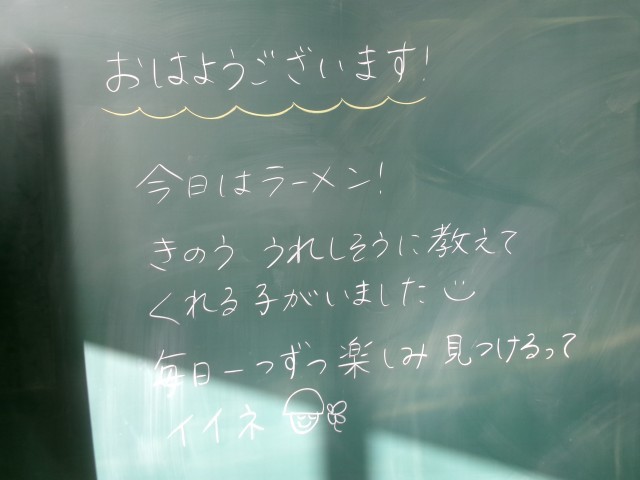 おはようございます!
今日はラーメン!
きのう うれしそうに教えて
くれる子がいました
毎日一つずつ楽しみ見つけるって
イイネ